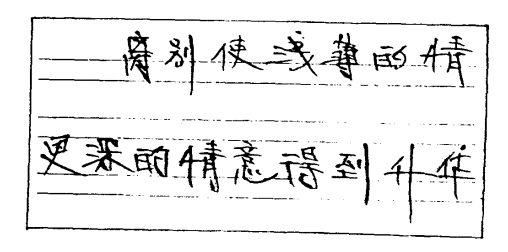 离别使浅薄的情
更深的情意得到升华